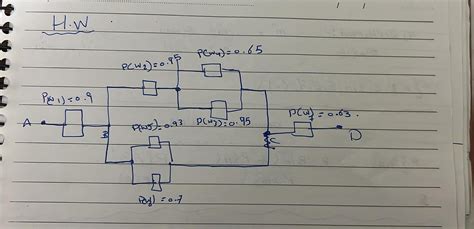 H.W
P(w4)=0.65
P(w2)=0.95
P(w1)=0.9
P(w5)=0.93
P(w7)=0.95
=0.63
A
B
C
D
=0.7